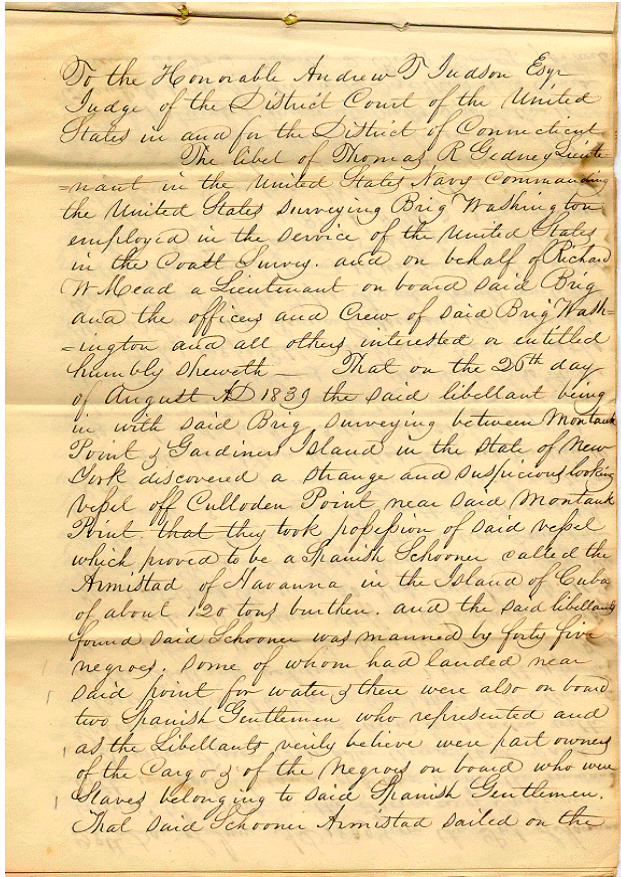 To the Honorable Andrew T Judson Esqr
Judge of the District Court of the United
States in and for the District of Connecticut
The libel of Thomas R Gedney Lieute-
=nant in the United States Navy commanding
the United States surveying Brig Washington
employed in the service of the United States
in the Coast Survey. and on behalf of Richard
W Mead a Lieutenant on board said Brig
and the officers and Crew of said Brig Wash=
=ington and all others interested or entitled
humbly sheweth — That on the 26th day
of August AD 1839 the said libellant being
in with said Brig surveying between Montauk
Point & Gardiners Island in the state of New
York discovered a strange and suspicious looking
vessel off Culloden Point near said Montauk
Point. that they took possession of said vessel
which proved to be a Spanish Schooner called the
Armistad of Havanna in the Island of Cuba
of about 120 tons burthen. and the said libellants
found said Schooner was manned by forty five
negroes. some of whom had landed near
said point for water & there were also on board
two Spanish Gentlemen who represented and
as the Libellants verily believe were part owners
of the Cargo & of the Negroes on board who were
Slaves belonging to said Spanish Gentlemen.
That said Schooner Armistad sailed on the